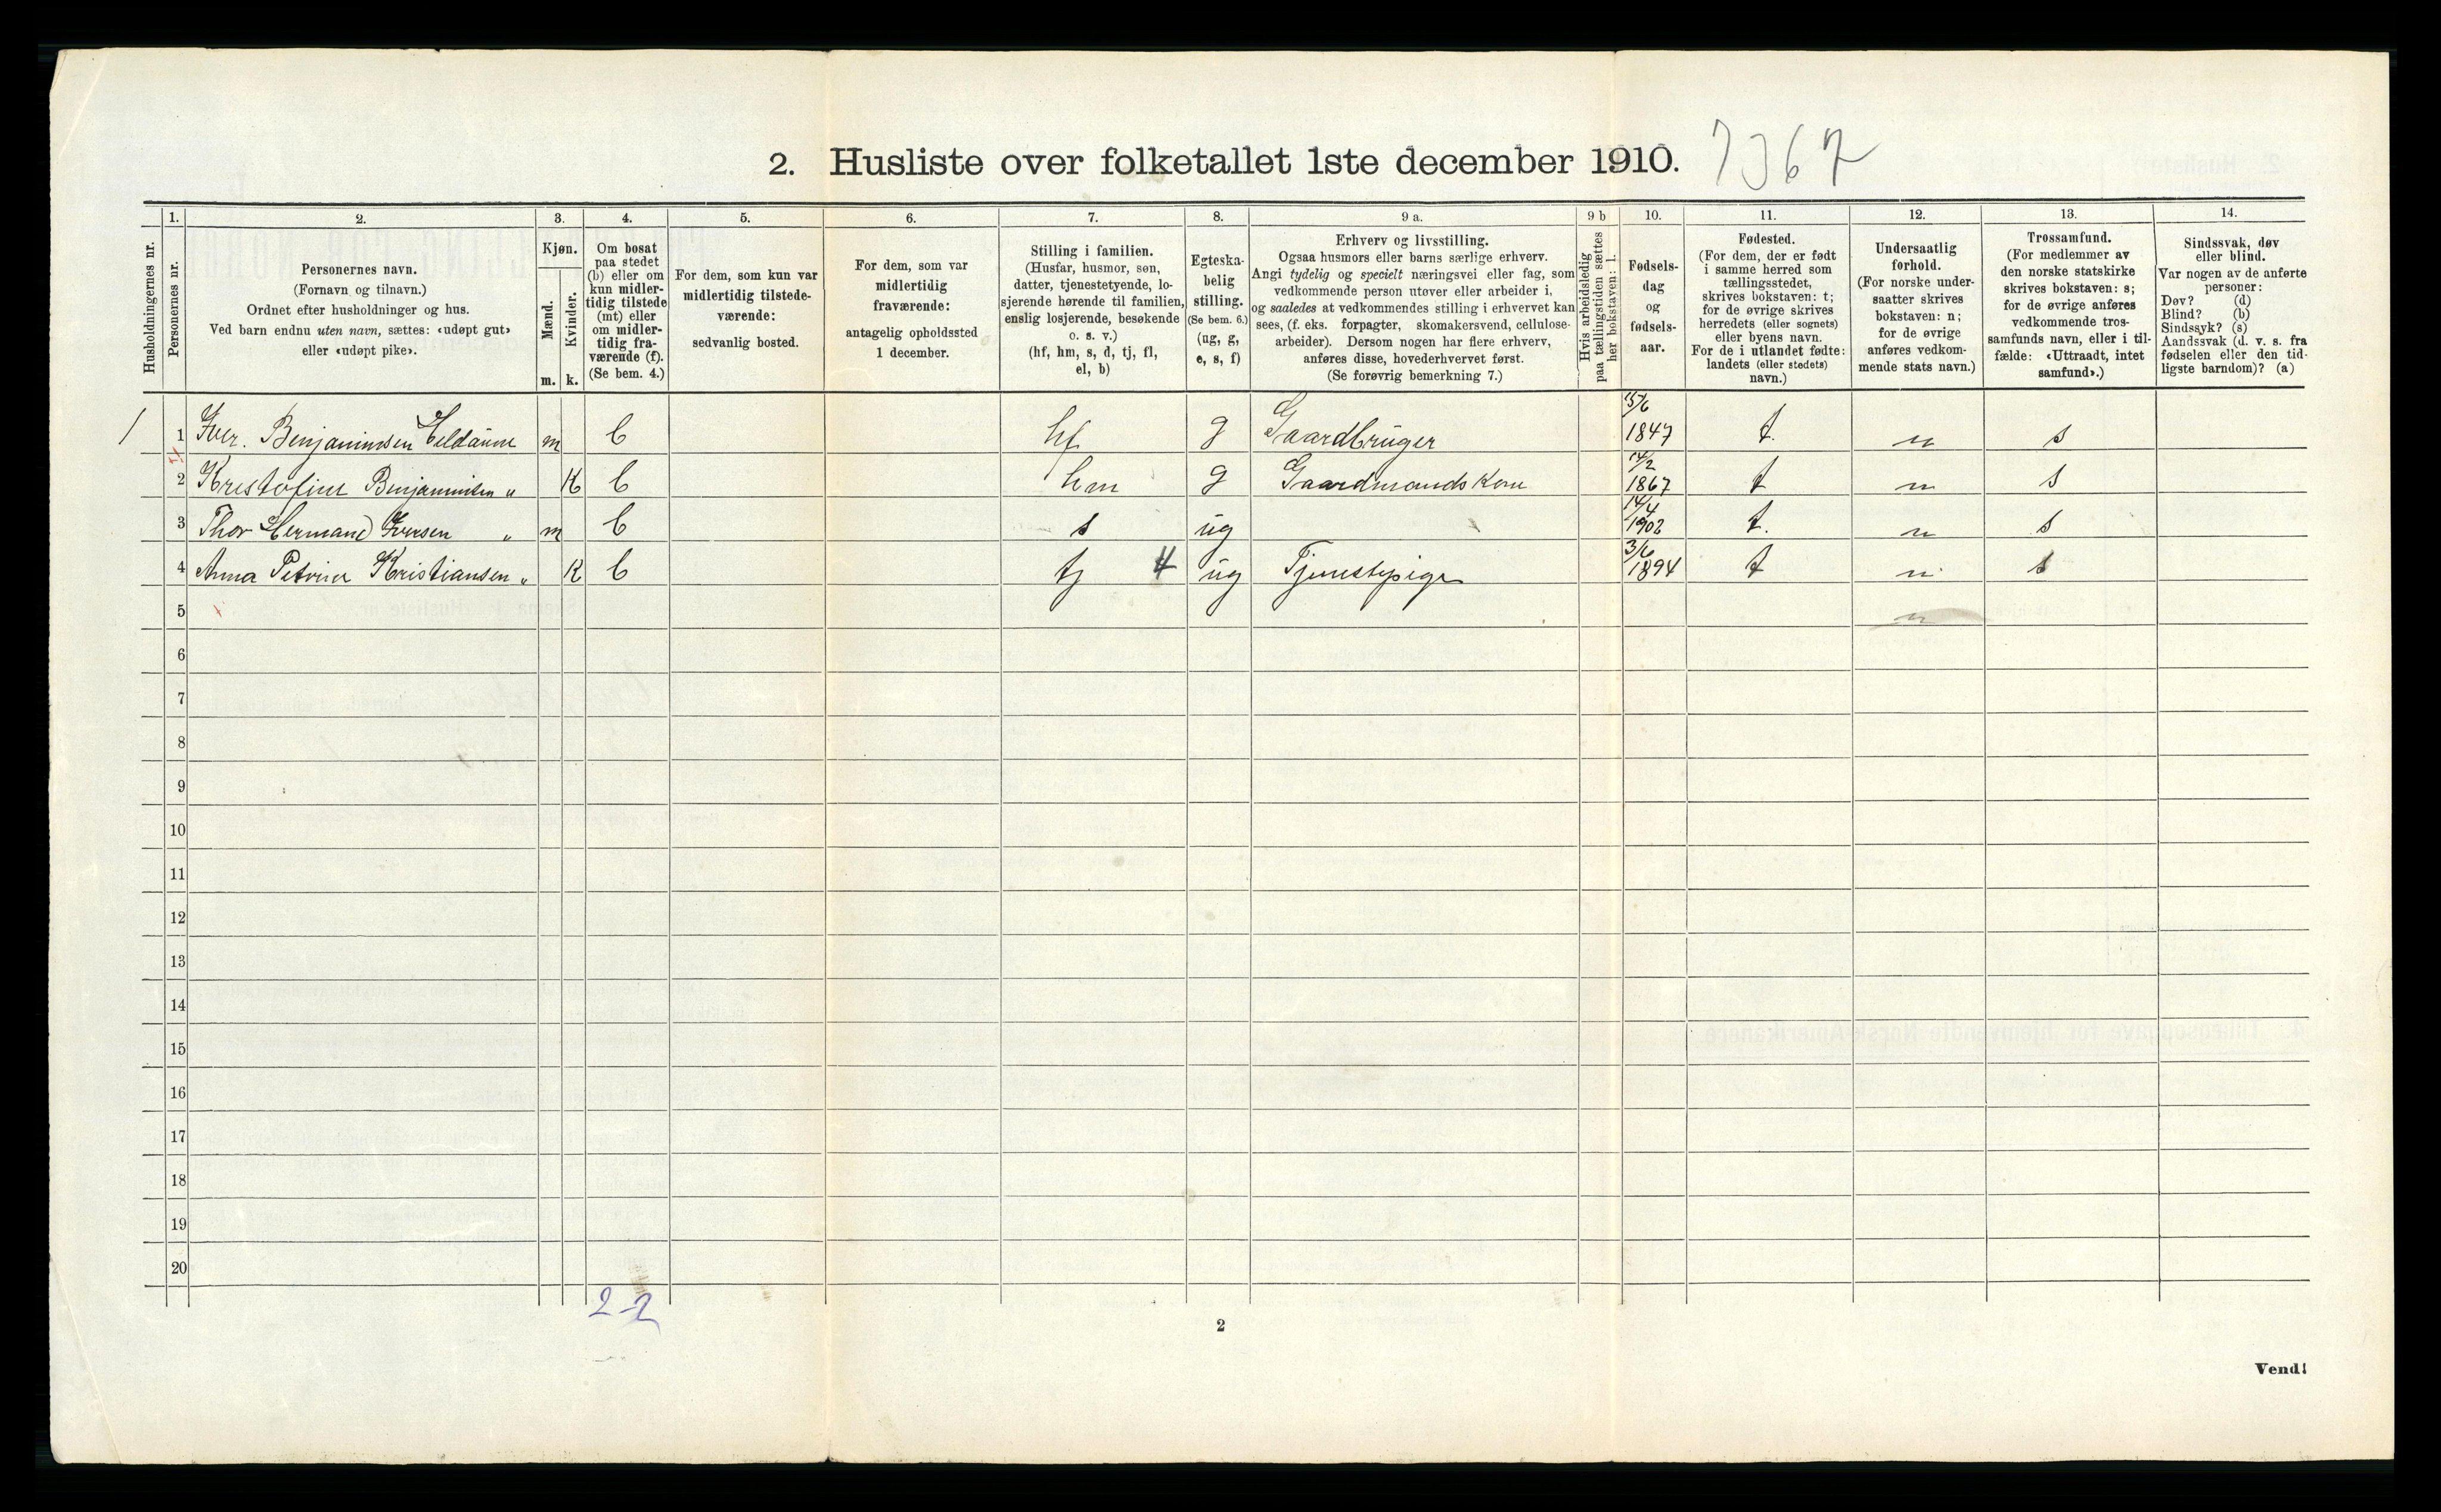 2. Husliste over folketallet 1ste december 1910. 7367
Husholdningernes nr.
1. Personernes nr.
2. Personernes navn.
(Fornavn og tilnavn.)
Ordnet efter husholdninger og hus.
Ved barn endnu uten navn, sættes: «udøpt gut»
eller «udøpt pike».
3. Kjøn.
Mænd. m.
Kvinder. k.
4. Om bosat
paa stedet
(b) eller om
kun midler-
tidig tilstede
(mt) eller
om midler-
tidig fra-
værende (f).
(Se bem. 4.)
5. For dem, som kun var
midlertidig tilstede-
værende:
sedvanlig bosted.
6. For dem, som var
midlertidig
fraværende:
antagelig opholdssted
1 december.
7. Stilling i familien.
(Husfar, husmor, søn,
datter, tjenestetyende, lo-
sjerende hørende til familien,
enslig losjerende, besøkende
o. s. v.)
(hf, hm, s, d, tj, fl,
el, b)
8. Egteska-
belig
stilling.
(Se bem. 6.)
(ug, g,
e, s, f)
9 a. Erhverv og livsstilling.
Ogsaa husmors eller barns særlige erhverv.
Angi tydelig og specielt næringsvei eller fag, som
vedkommende person utøver eller arbeider i,
og saaledes at vedkommendes stilling i erhvervet kan
sees, (f. eks. forpagter, skomakersvend, cellulose-
arbeider). Dersom nogen har flere erhverv,
anføres disse, hovederhvervet først.
(Se forøvrig bemerkning 7.)
9 b Hvis arbeidsledig
paa tællingstiden sættes
her bokstaven: l.
10. Fødsels-
dag
og
fødsels-
aar.
11. Fødested.
(For dem, der er født
i samme herred som
tællingsstedet,
skrives bokstaven: t;
for de øvrige skrives
herredets (eller sognets)
eller byens navn.
For de i utlandet fødte:
landets (eller stedets)
navn.)
12. Undersaatlig
forhold.
(For norske under-
saatter skrives
bokstaven: n;
for de øvrige
anføres vedkom-
mende stats navn.)
13. Trossamfund.
(For medlemmer av
den norske statskirke
skrives bokstaven: s;
for de øvrige anføres
vedkommende tros-
samfunds navn, eller i til-
fælde: «Uttraadt, intet
samfund».)
14. Sindssvak, døv
eller blind.
Var nogen av de anførte
personer:
Døv? (d)
Blind? (b)
Sindssyk? (s)
Aandssvak (d. v. s. fra
fødselen eller den tid-
ligste barndom)? (a)
1 1 Iver. Benjaminsen m b hf g Gaardbruger 15/6 1847 t. n s
2 Kristofine Benjaminsen " K b hm g Gaardmands Kone 14/2 1867 t n s
3 Thor Hermand Iversen " m b s ug 14/4 1902 t. n s
4 Anna Petrine Kristiansen " K b tj 4 ug Tjenestepige 3/6 1894 t n s
5 n
6
7
8
9
10
11
12
13
14
15
16
17
18
19
20
2-2
2
Vend!